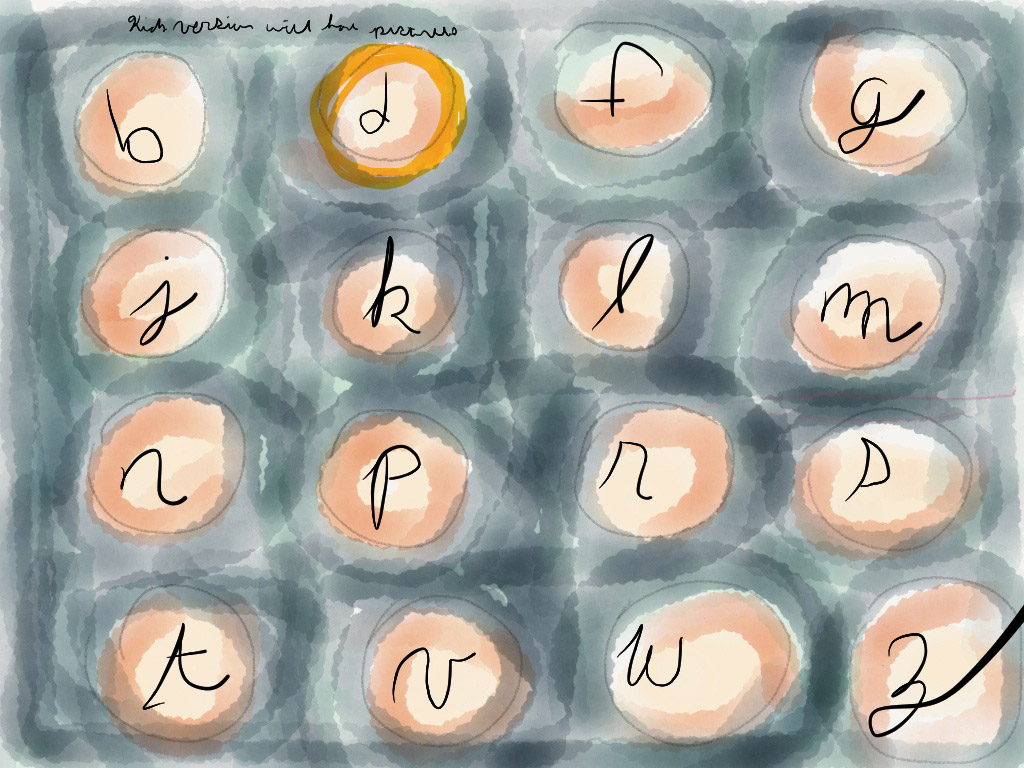 Kids version will have pictures
b d f g
j k l m
n p r s
t v w z